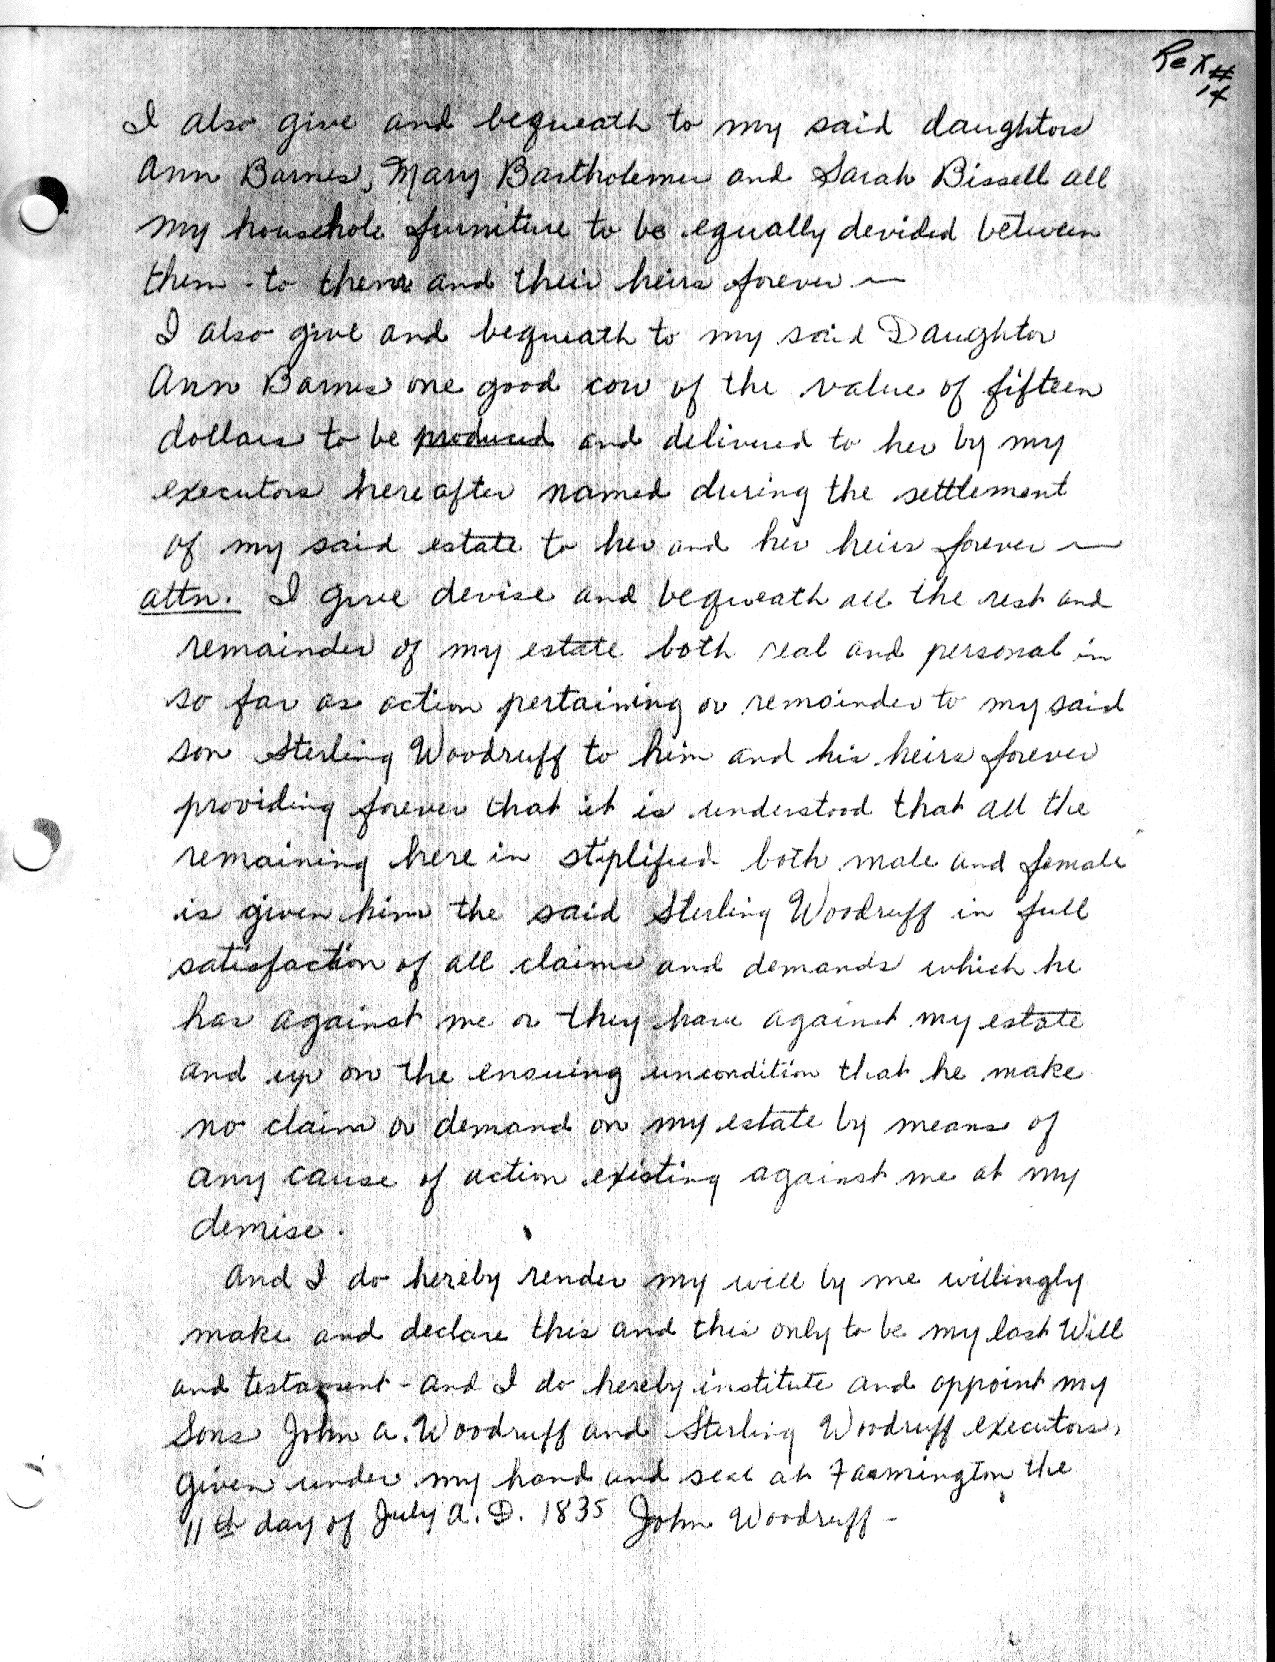 Rex #
14
I also give and bequeath to my said daughters
Ann Barnes, Mary Bartholemew and Sarah Bissell all
my househole furniture to be equally devided between
them - to them and their heirs forever —
I also give and bequeath to my said Daughter
Ann Barnes one good cow of the value of fifteen
dollars to be produced and delivered to her by my
executors here after named during the settlement
of my said estate to her and her heirs forever —
attn. I give devise and bequeath all the rest and
remainder of my estate both real and personal in
so far as action pertaining or remainder to my said
son Sterling Woodruff to him and his heirs forever
providing forever that it is understood that all the
remaining here in stiplified both male and female
is given him the said Sterling Woodruff in full
satisfaction of all claims and demands which he
has against me or they have against my estate
and up on the ensuing uncondition that he make
no claim or demand on my estate by means of
any cause of action existing against me at my
demise.
And I do hereby render my will by me willingly
make and declare this and this only to be my last Will
and testament - and I do hereby institute and appoint my
Sons John A. Woodruff and Sterling Woodruff executors,
given under my hand and seal at Farmington the
11th day of July A.D. 1835 John Woodruff -